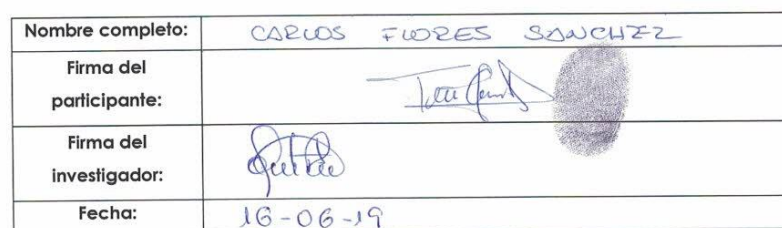 Nombre completo: CARLOS FLORES SANCHEZ
Firma del
participante:
Firma del
investigador:
Fecha: 16-06-19